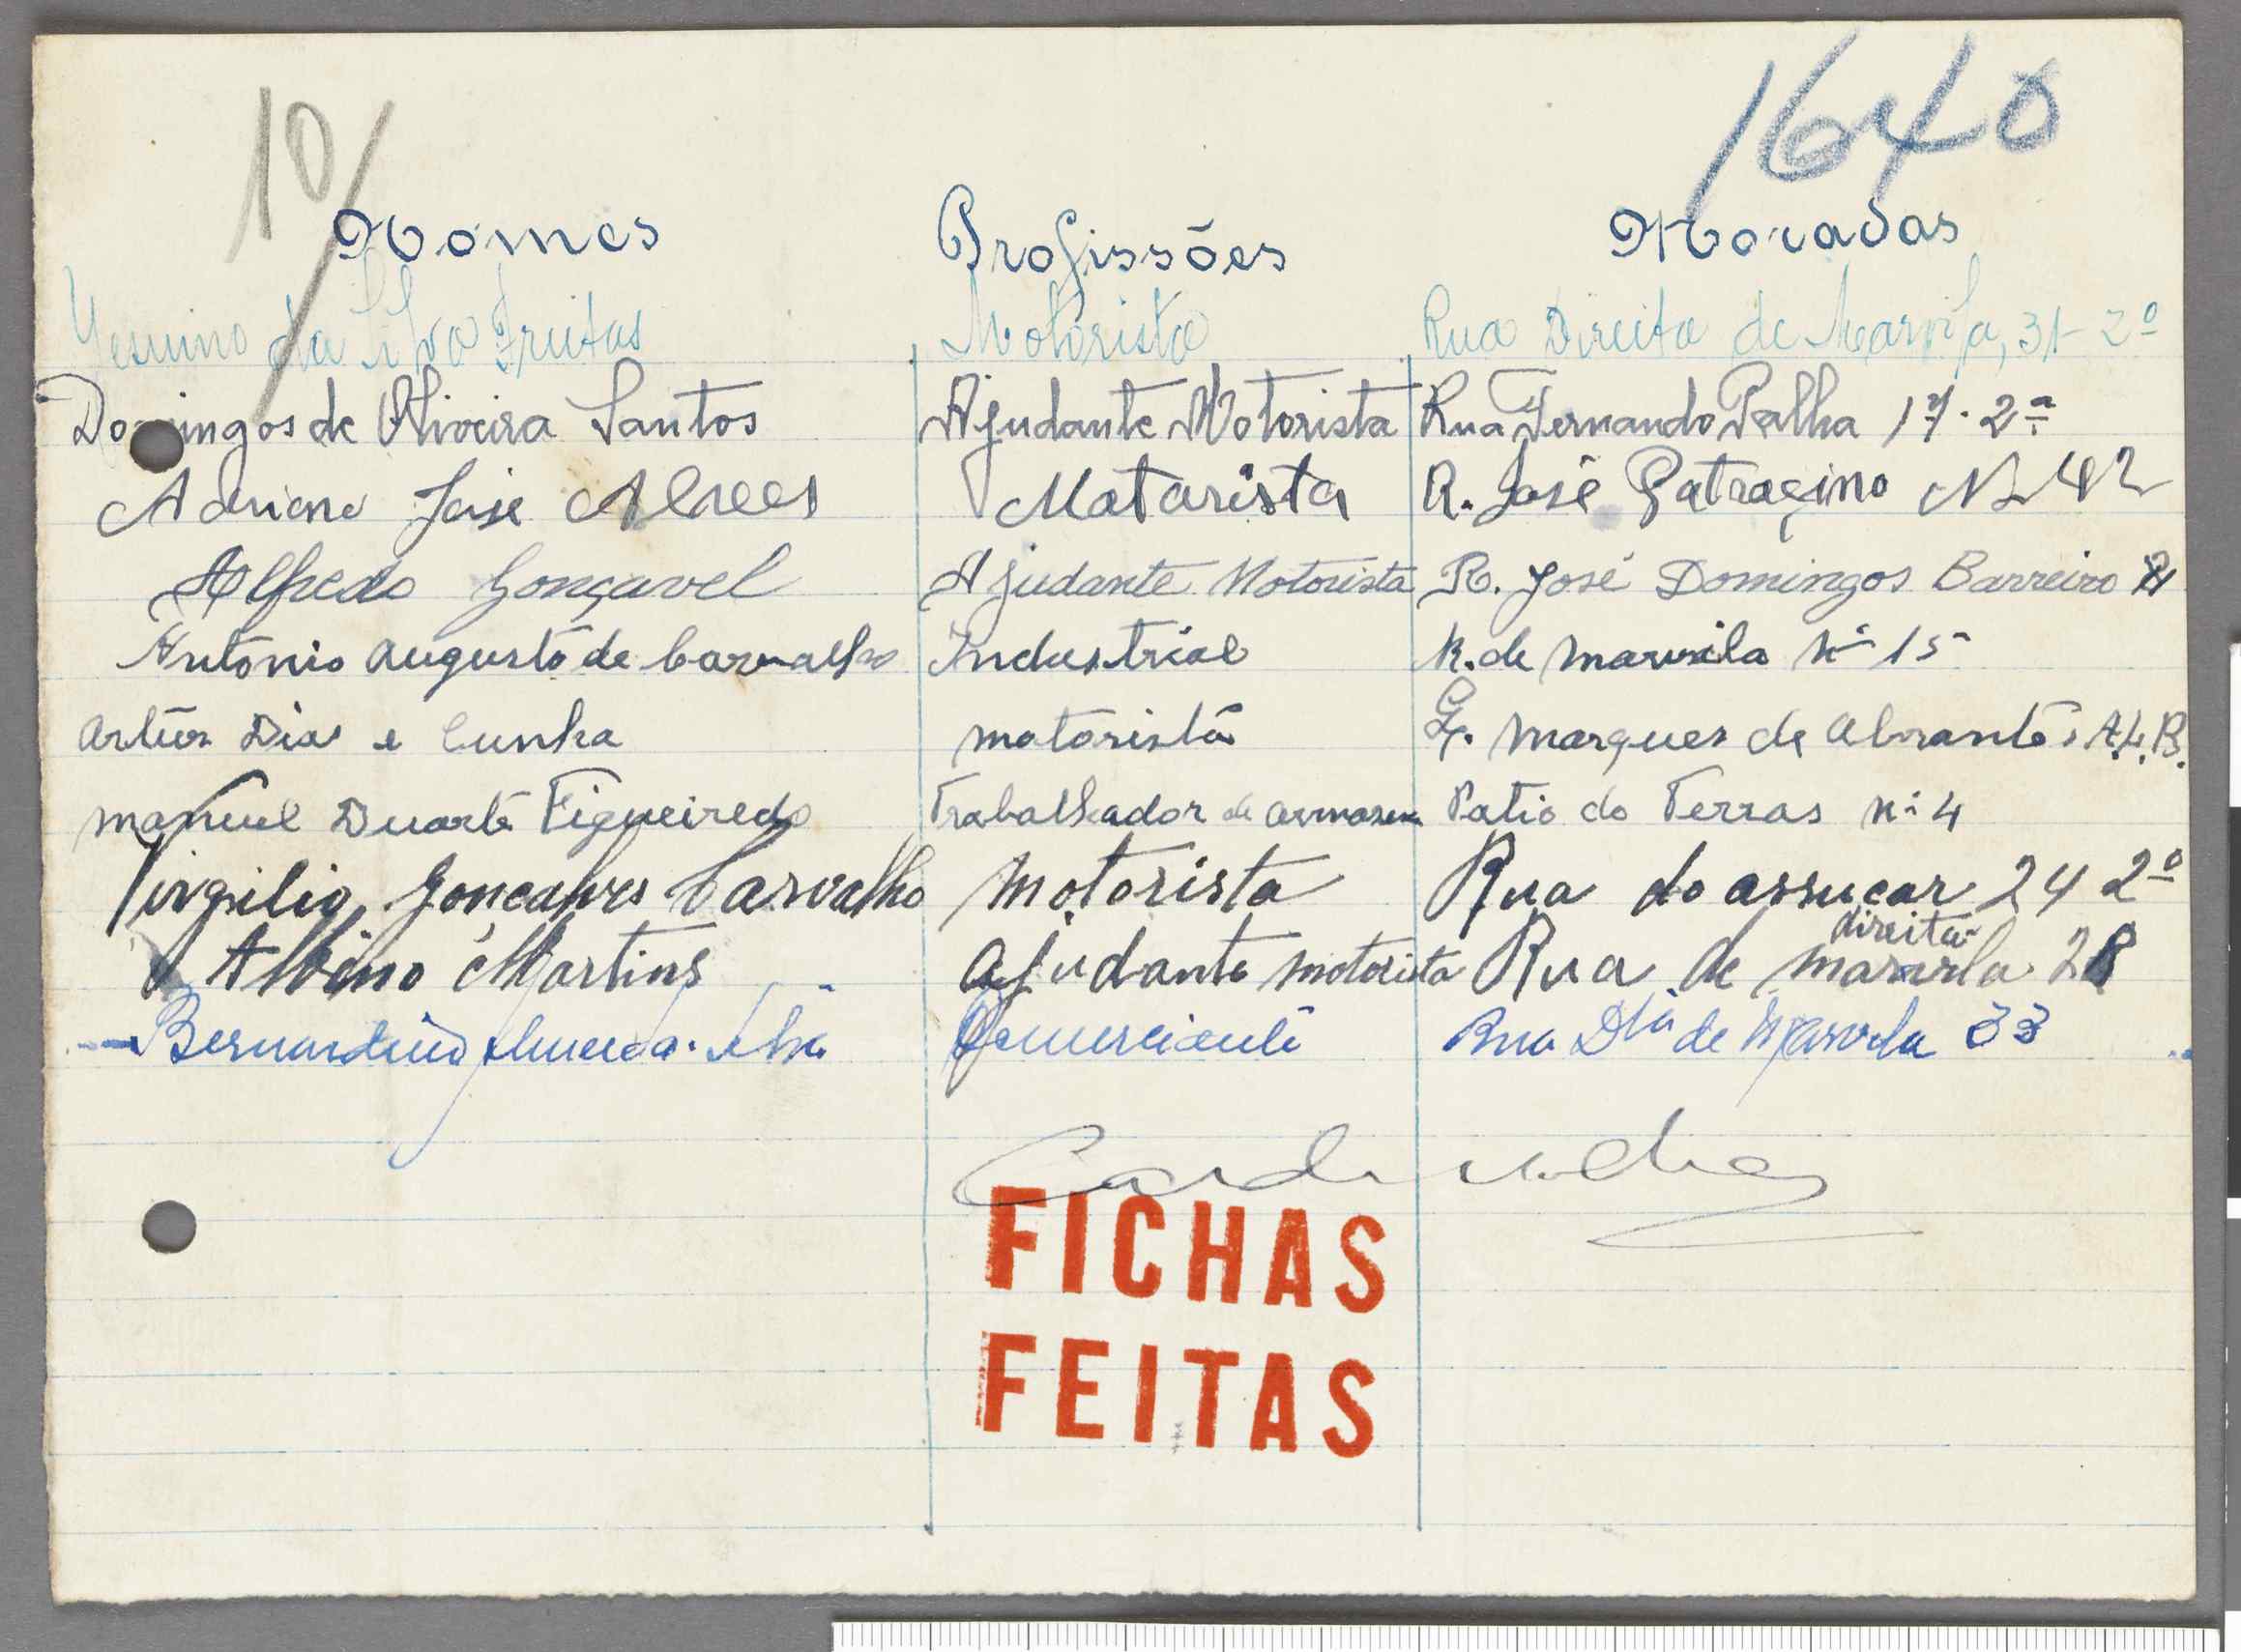 10/
1640
Nomes Profissões Moradas
Yesuino da Silva Frutas Motorista Rua Direita de Marvila, 31-2º
Domingos de Oliveira Santos Ajudante Motorista Rua Fernando Palha 17-2º
Adriano Jose Alves Matarista R. José Patraçino Nº 42
Alfredo Gonçavel Ajudante Motorista R. José Domingos Barreiro
António Augusto de Carvalho Industrial R. de Marvila Nº 15
Artur Dias e Cunha motorista Marques de Abrantes A.L.B.
Manuel Duarte Figueiredo Trabalhador de armazem Patio do Terras nº 4
Virgilio Goncalves Carvalho Motorista Rua do assucar 24 2º
Albino Martins Ajudante motorista Rua direita de marvila 28
Bernardino Almeida Silva Comerciante Rua Dta de Marvila 33
FICHAS
FEITAS